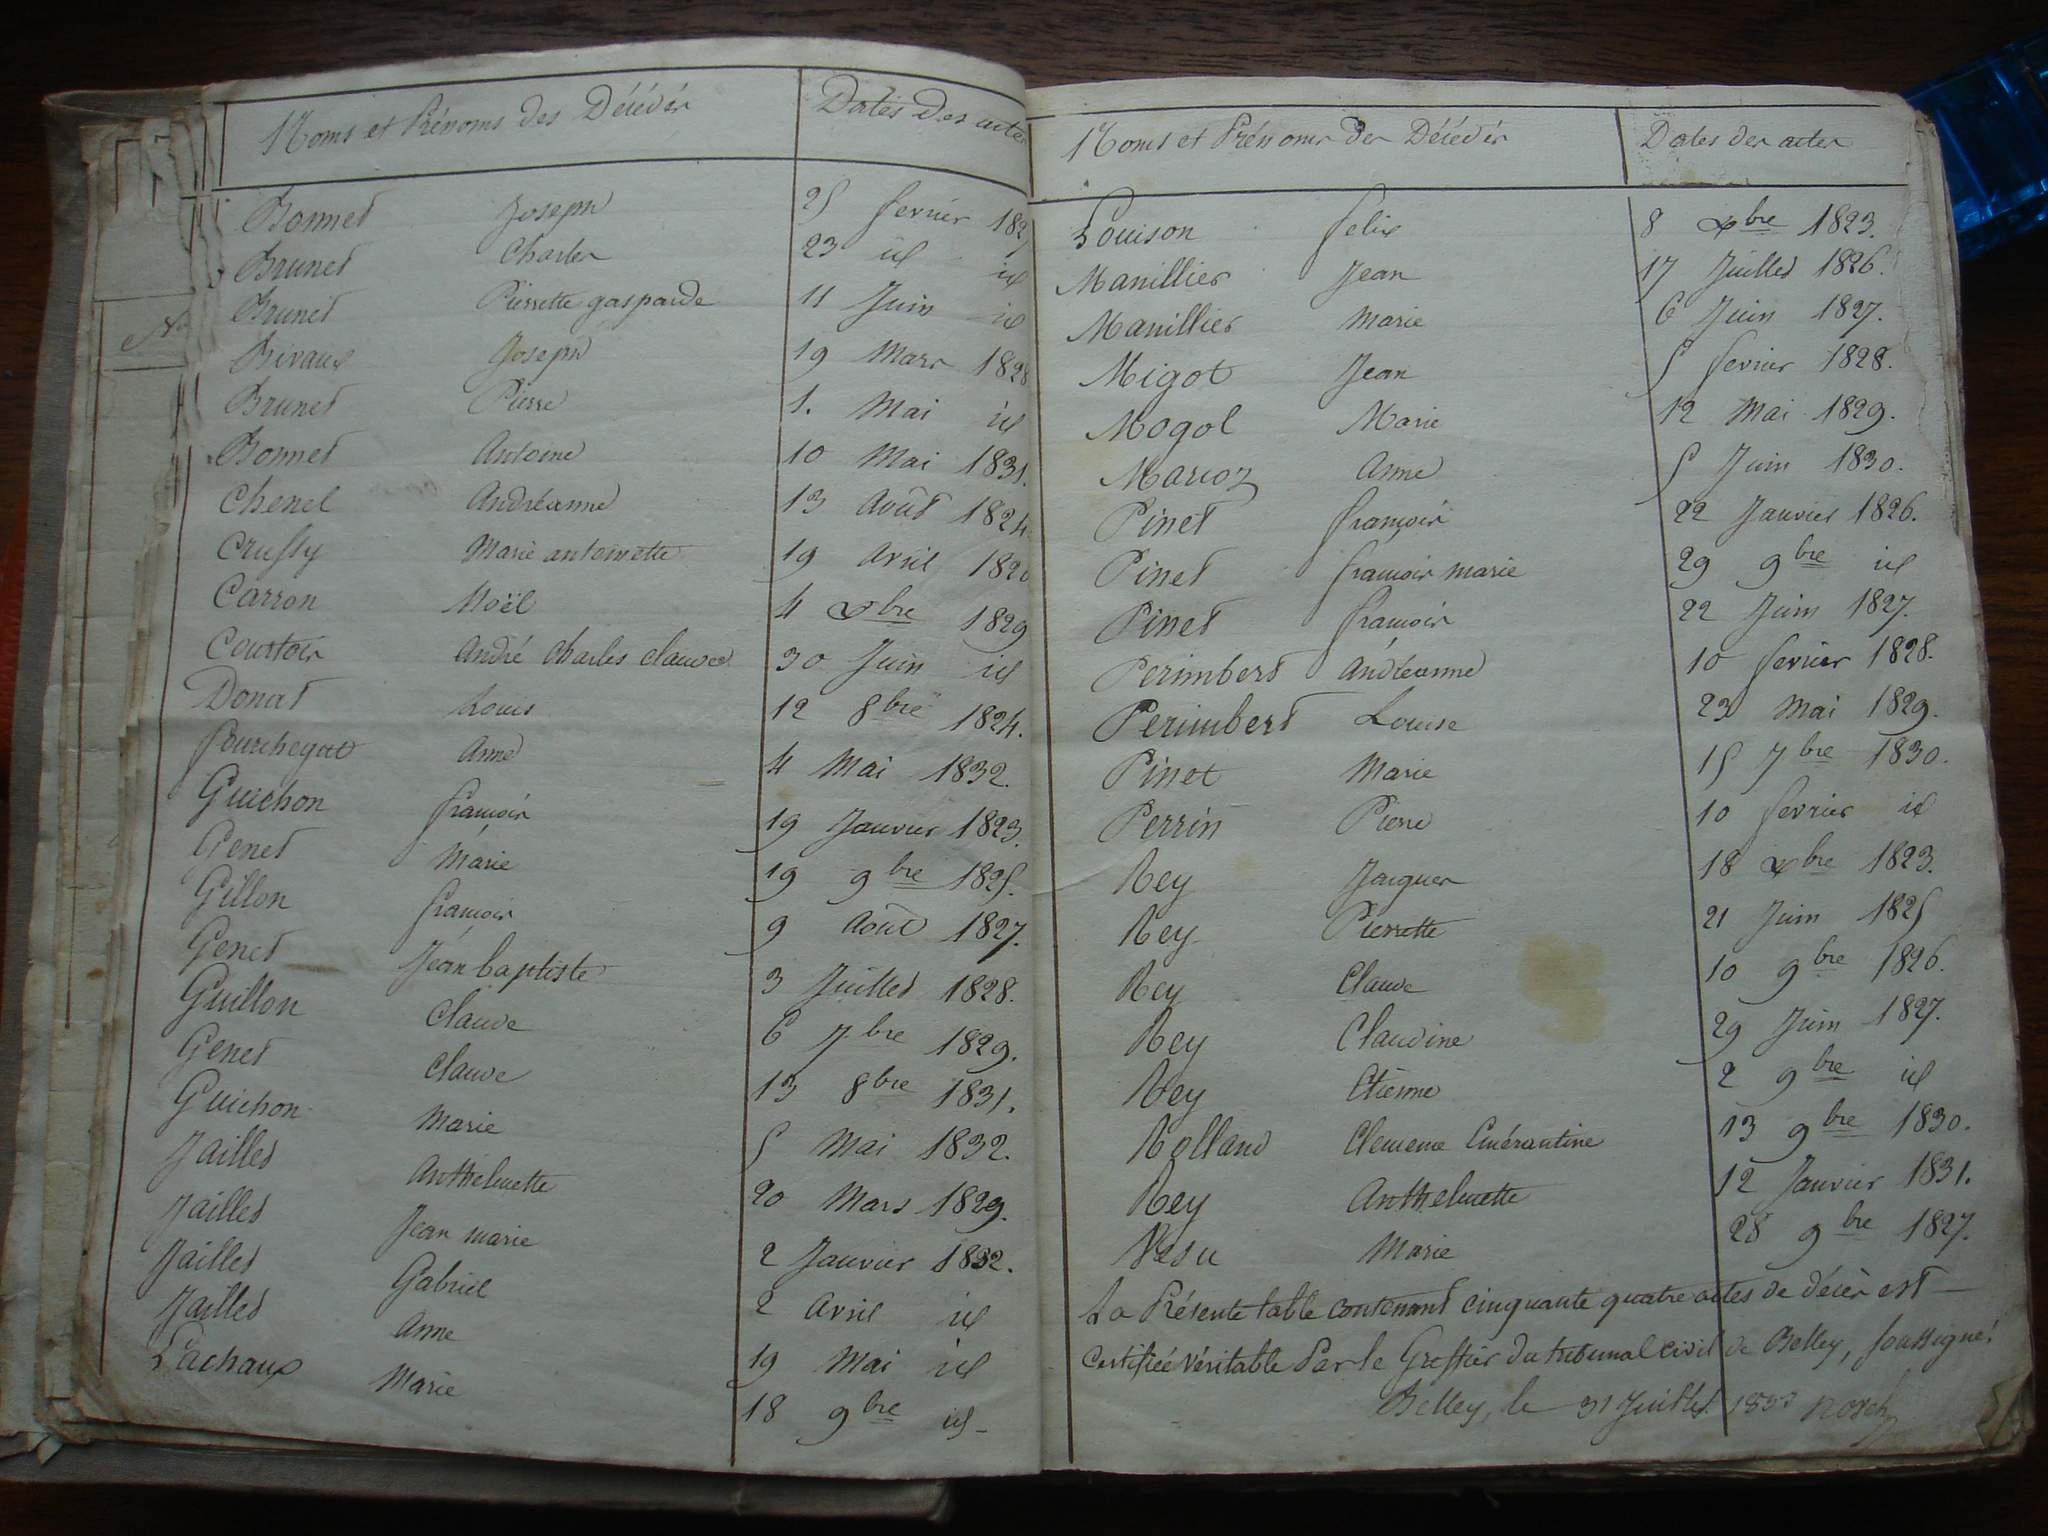 Noms et Prénoms des Décédés Dates des actes
Bonnet Joseph 25 fevrier 1827
Brunet Charles 23 id id
Brunet Pierrette gasparde 11 Juin id
Bivaux Joseph 19 Mars 1828
Brunet Pierre 1. Mai id
Bonnet Antoine 10 Mai 1831.
Chenel Andréanne 13 Août 1824
Crussy Marie antoinette 19 Avril
Carron Noël 4 Xbre 1829
Courtois André Charles claude 30 Juin id
Donat Louis 12 8bre 1824.
Anne 4 Mai 1832.
Guichon francois 19 Janvier 1823.
Genet Marie 19 9bre 1825.
Gillon francois 9 Août 1827.
Genet Jean baptiste 3 Juillet 1828.
Guillon Claude 6 7bre 1829.
Genet Claude 13 8bre 1831.
Guichon Marie 5 Mai 1832.
Jaillet Anthelmette 20 Mars 1829.
Jaillet Jean marie 2 Janvier 1832.
Jaillet Gabriel 2 Avril id
Jaillet Anne 19 Mai id
Lachaux Marie 18 9bre id
Noms et Prénoms des Décédés Dates des actes
Louison felix 8 Xbre 1823.
Manillier Jean 17 Juillet 1826.
Manillier Marie 6 Juin 1827.
Migot Jean 5 fevrier 1828.
Mogol Marie 12 Mai 1829.
Marcoz Anne 5 Juin 1830.
Pinet francois 22 Janvier 1826.
Pinet francois marie 29 9bre id
Pinet francois 22 Juin 1827.
Perimbert Andréanne 10 fevrier 1828.
Perimbert Louise 23 Mai 1829.
Pinet Marie 15 7bre 1830.
Perrin Pierre 10 fevrier id
Rey Jacques 18 Xbre 1823.
Rey Pierrette 21 Juin 1825
Rey Claude 10 9bre 1826.
Rey Claudine 29 Juin 1827.
Rey Etienne 2 9bre id
Rolland Clemence Emérantine 13 9bre 1830.
Rey Anthelmette 12 Janvier 1831.
Vesu Marie 28 9bre 1827.
La Présente table contenant cinquante quatre actes de décès est
certifiée véritable Par le Greffier du tribunal civil de Belley, soussigné.
Belley, le 31 Juillet 1833